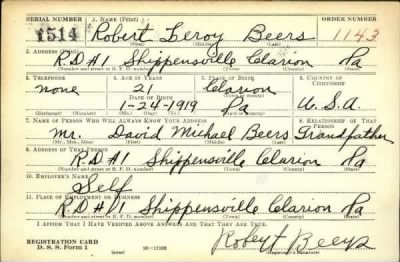 SERIAL NUMBER 1. NAME (Print) ORDER NUMBER
1514 Robert Leroy Beers 1143
(First) (Middle) (Last)
2. ADDRESS (Print)
R.D #1 Shippensville Clarion Pa
(Number and street or R. F. D. number) (Town) (County) (State)
3. TELEPHONE 4. AGE IN YEARS 5. PLACE OF BIRTH 6. COUNTRY OF CITIZENSHIP
none 21 Clarion U.S.A
DATE OF BIRTH
1-24-1919 Pa
7. NAME OF PERSON WHO WILL ALWAYS KNOW YOUR ADDRESS 8. RELATIONSHIP OF THAT PERSON
Mr. David Michael Beers Grandfather
(Mr., Mrs., Miss) (First) (Middle) (Last)
9. ADDRESS OF THAT PERSON
R.D #1 Shippensville Clarion Pa
(Number and street or R. F. D. number) (Town) (County) (State)
10. EMPLOYER'S NAME
Self
11. PLACE OF EMPLOYMENT OR BUSINESS
R.D #1 Shippensville Clarion Pa
(Number and street or R. F. D. number) (Town) (County) (State)
I AFFIRM THAT I HAVE VERIFIED ABOVE ANSWERS AND THAT THEY ARE TRUE.
REGISTRATION CARD
D. S. S. Form 1 (over) 16-17105
Robert Beers
(Registrant's signature)